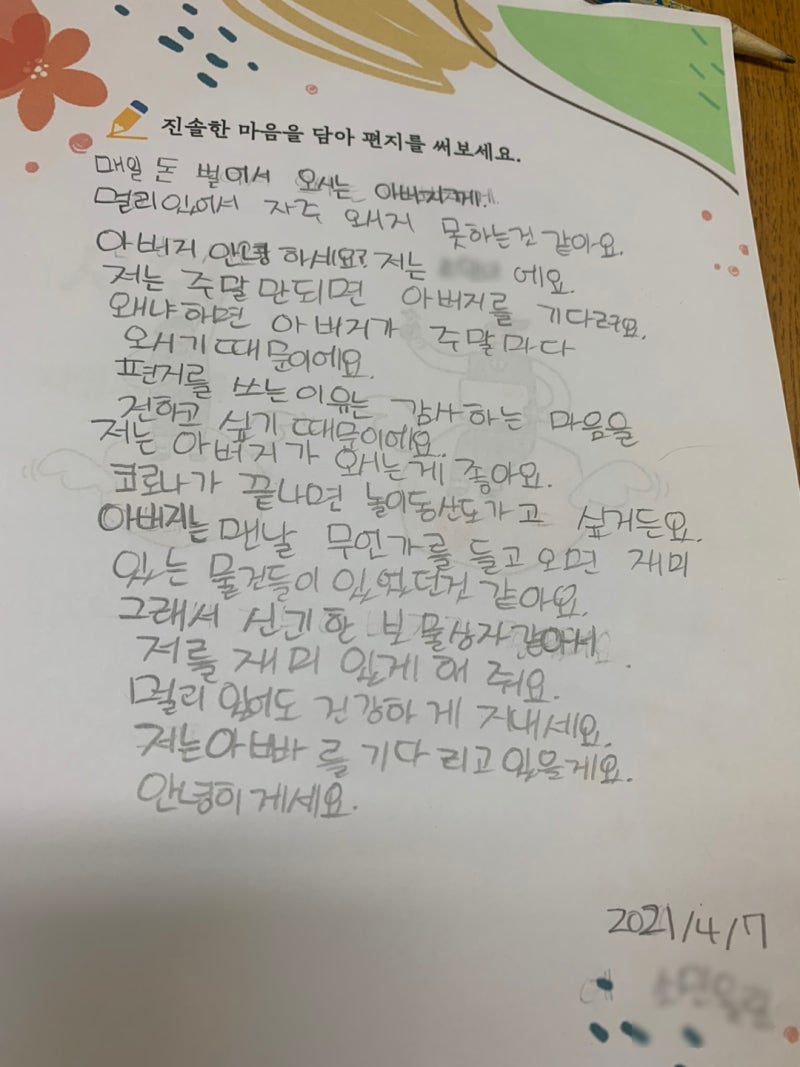 진솔한 마음을 담아 편지를 써보세요.
매일 돈 벌어서 오시는 아버지께!
멀리있어서 자주 왜시지 못하는건 같아요.
아버지 안녕 하세요? 저는 에요.
저는 주말만되면 아버지를 기다려요.
왜냐하면 아버지가 주말마다
오시기때문이에요.
편지를 쓰는이유는 감사하는 마음을
전하고 싶기때문이에요.
저는 아버지가 오시는게 좋아요.
코로나가 끝나면 놀이동산도가고 싶거든요.
아버지는 맨날 무언가를 들고오면 재미
있는 물건들이 있었던건 같아요.
그래서 신기한 보물상자같아서
저를 재미있게 해 줘요.
멀리 있어도 건강하게 지내세요.
저는아빠를기다리고있을게요.
안녕히게세요.
2021/4/7